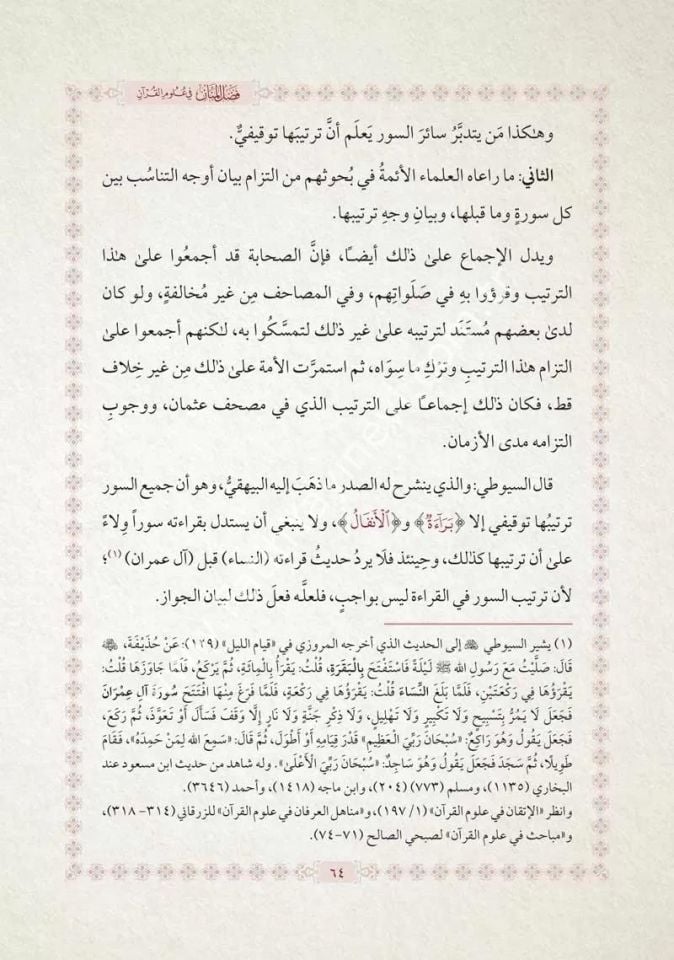 فَضْلُ المَنَّانِ فِي عُلُومِ القُرْآنِ
وهـٰكذا مَن يتدبَّرُ سائرَ السور يَعلَم أنَّ ترتيبَها توقيفيٌّ.
الثاني: ما راعاه العلماء الأئمةُ في بُحوثهم من التزام بيان أوجه التناسُب بين
كل سورةٍ وما قبلها، وبيانِ وجهِ ترتيبها.
ويدل الإجماع علىٰ ذٰلك أيضًا، فإنَّ الصحابة قد أجمعُوا علىٰ هٰذا
الترتيب وقرؤوا بهِ في صَلَواتِهم، وفي المصاحف مِن غير مُخالفةٍ، ولو كان
لدىٰ بعضهم مُستَنَد لترتيبه علىٰ غير ذٰلك لتمسَّكُوا به، لٰكنهم أجمعوا علىٰ
التزام هٰذا الترتيبِ وتركِ ما سِوَاه، ثم استمرَّت الأمة علىٰ ذٰلك مِن غير خِلاف
قط، فكان ذٰلك إجماعًا على الترتيب الذي في مصحف عثمان، ووجوبِ
التزامه مدى الأزمان.
قال السيوطي: والذي ينشرح له الصدر ما ذهَبَ إليه البيهقيُّ، وهو أن جميع السور
ترتيبُها توقيفي إلا ﴿بَرَآءَةٌ﴾ و﴿ٱلۡأَنفَالُ﴾، ولا ينبغي أن يستدل بقراءته سوراً وِلاءً
علىٰ أن ترتيبها كذلك، وحِينئذ فلَا يردُ حديثُ قراءته (النساء) قبل (آل عمران)(١)؛
لأن ترتيب السور في القراءة ليس بواجبٍ، فلعلَّه فعلَ ذٰلك لبيان الجواز.
(١) يشير السيوطي إلى الحديث الذي أخرجه المروزي في «قيام الليل» (١٣٩): عَنْ حُذَيْفَةَ،
قَالَ: صَلَّيْتُ مَعَ رَسُولِ اللهِ ﷺ لَيْلَةً فَاسْتَفْتَحَ بِالْبَقَرَةِ، قُلْتُ: يَقْرَأُ بِالْمِائَةِ، ثُمَّ يَرْكَعُ، فَلَمَّا جَاوَزَهَا قُلْتُ:
يَقْرَؤُهَا فِي رَكْعَتَيْنِ، فَلَمَّا بَلَغَ النِّسَاءَ قُلْتُ: يَقْرَؤُهَا فِي رَكْعَةٍ، فَلَمَّا فَرَغَ مِنْهَا افْتَتَحَ سُورَةَ آلِ عِمْرَانَ
فَجَعَلَ لَا يَمُرُّ بِتَسْبِيحٍ وَلَا تَكْبِيرٍ وَلَا تَهْلِيلٍ، وَلَا ذِكْرِ جَنَّةٍ وَلَا نَارٍ إِلَّا وَقَفَ فَسَأَلَ أَوْ تَعَوَّذَ، ثُمَّ رَكَعَ،
فَجَعَلَ يَقُولُ وَهُوَ رَاكِعٌ: «سُبْحَانَ رَبِّيَ الْعَظِيمِ» قَدْرَ قِيَامِهِ أَوْ أَطْوَلَ، ثُمَّ قَالَ: «سَمِعَ اللهُ لِمَنْ حَمِدَهُ»، فَقَامَ
طَوِيلًا، ثُمَّ سَجَدَ فَجَعَلَ يَقُولُ وَهُوَ سَاجِدٌ: «سُبْحَانَ رَبِّيَ الْأَعْلَىٰ». وله شاهد من حديث ابن مسعود عند
البخاري (١١٣٥)، ومسلم (٧٧٣) (٢٠٤)، وابن ماجه (١٤١٨)، وأحمد (٣٦٤٦).
وانظر «الإتقان في علوم القرآن» (١/ ١٩٧)، و«مناهل العرفان في علوم القرآن» للزرقاني (٣١٤-٣١٨)،
و«مباحث في علوم القرآن» لصبحي الصالح (٧١-٧٤).
٦٤